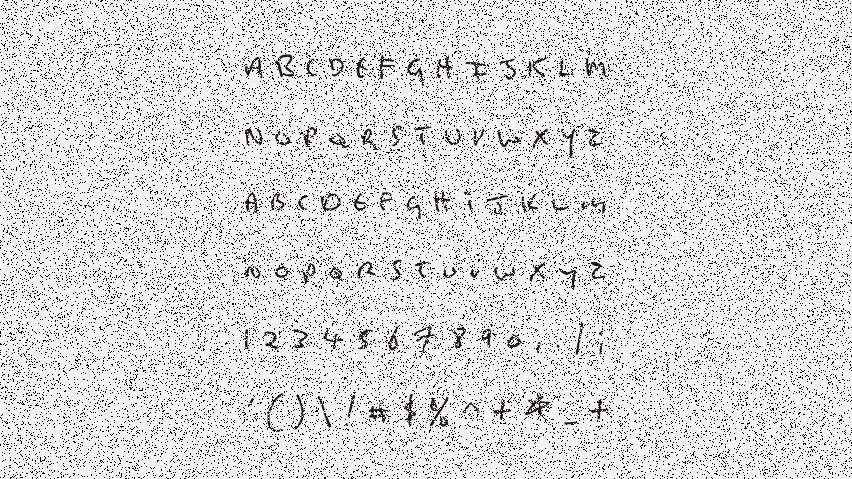 A B C D E F G H I J K L M
N O P Q R S T U V W X Y Z
A B C D E F G H i J K L m
N O P Q R S T U V W X Y Z
1 2 3 4 5 6 7 8 9 0 , . / ;
' ( ) \ ! # $ % ^ + * _ +